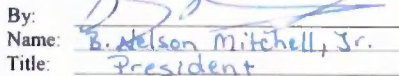 By:
Name: B. Nelson Mitchell, Jr.
Title: President